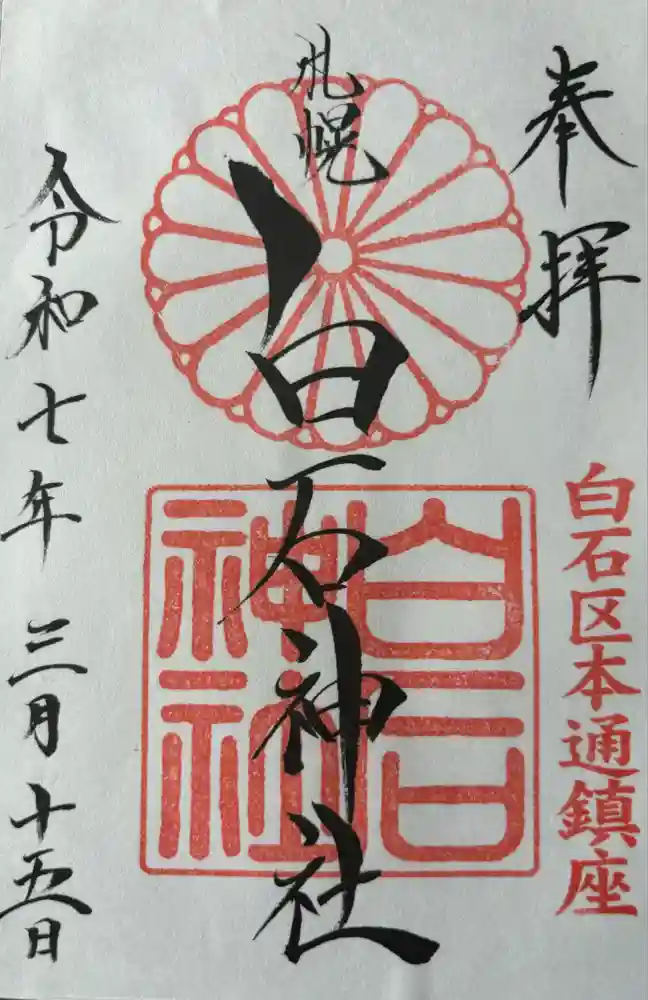 奉拝
白石区本通鎮座
札幌
白石神社
白石神社
令和七年三月十五日